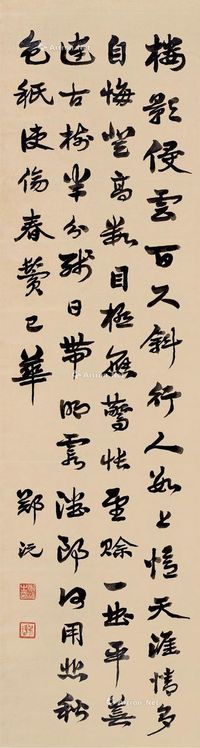 樓影侵雲百尺斜行人樓上憶天涯情多
自悔登高數目極應驚悵望賒一曲平蕪
連古樹半分殘日帶明霞潘郎何用悲秋
色祇使傷春鬢已華
鄭沅